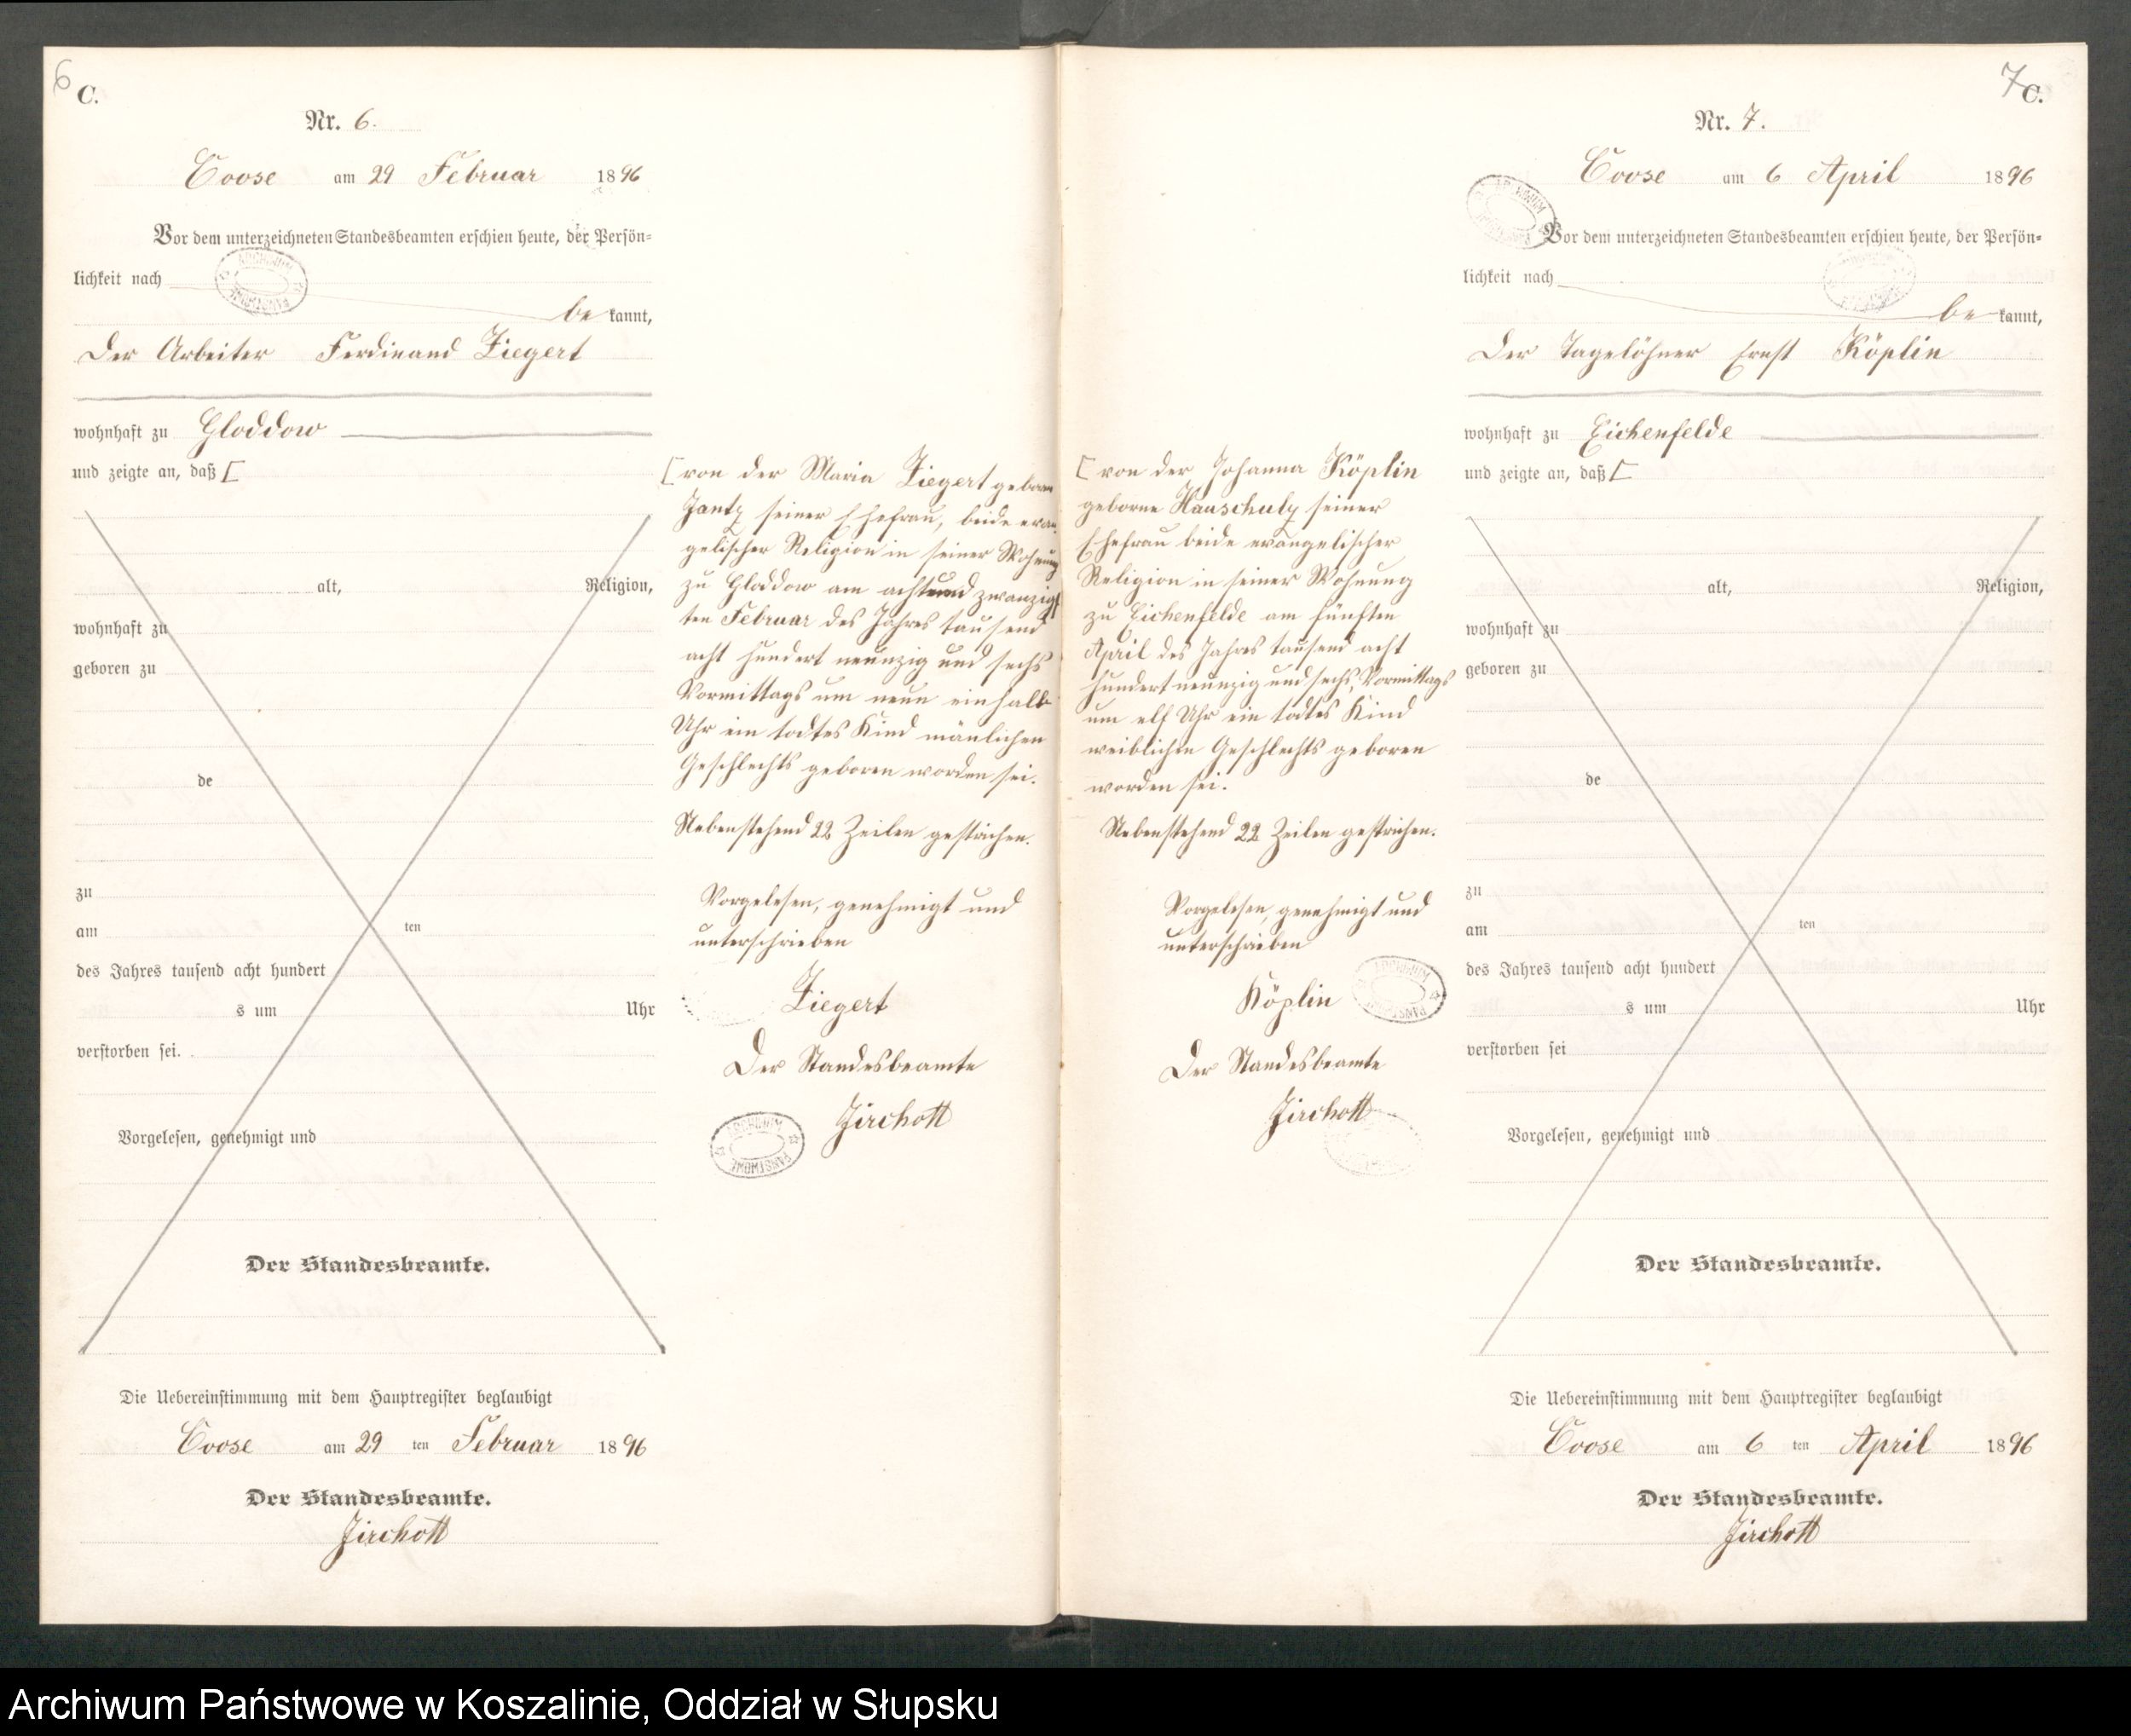 6
C.
Nr. 6.
Coose am 29 Februar 1896
Vor dem unterzeichneten Standesbeamten erschien heute, der Persön=
lichkeit nach
be kannt,
der Arbeiter Ferdinand Ziegert
wohnhaft zu Gloddow
und zeigte an, daß [
alt, Religion,
wohnhaft zu
geboren zu
de
zu
am ten
des Jahres tausend acht hundert
s um Uhr
verstorben sei.
Vorgelesen, genehmigt und
Der Standesbeamte.
Die Uebereinstimmung mit dem Hauptregister beglaubigt
Coose am 29 ten Februar 1896
Der Standesbeamte.
Zirchott
[von der Maria Ziegert geboren
Jantz seiner Ehefrau, beide evan
gelischer Religion in seiner Wohnung
zu Gloddow am achtund zwanzigs
ten Februar des Jahres tausend
acht hundert neunzig und sechs
Vormittags um neun einhalb
Uhr ein todtes Kind mänlichen
Geschlechts geboren worden sei.
Nebenstehend 22 Zeilen gestrichen.
Vorgelesen, genehmigt und
unterschrieben
Ziegert
Der Standesbeamte
Zirchott
ARCHIWUM PAŃSTWOWE
7
C.
Nr. 7.
Coose am 6 April 1896
Vor dem unterzeichneten Standesbeamten erschien heute, der Persön=
lichkeit nach
be kannt,
der Tagelöhner Ernst Köplin
wohnhaft zu Eichenfelde
und zeigte an, daß [
[von der Johanna Köplin
geborne Hauschulz seiner
Ehefrau beide evangelischer
Religion in seiner Wohnung
zu Eichenfelde am fünften
April des Jahres tausend acht
hundert neunzig und sechs, Vormittags
um elf Uhr ein todtes Kind
weiblichen Geschlechts geboren
worden sei.
Nebenstehend 22 Zeilen gestrichen.
Vorgelesen, genehmigt und
unterschrieben
Köplin
Der Standesbeamte
Zirchott
alt, Religion,
wohnhaft zu
geboren zu
de
zu
am ten
des Jahres tausend acht hundert
s um Uhr
verstorben sei
Vorgelesen, genehmigt und
Der Standesbeamte.
Die Uebereinstimmung mit dem Hauptregister beglaubigt
Coose am 6 ten April 1896
Der Standesbeamte.
Zirchott
Archiwum Państwowe w Koszalinie, Oddział w Słupsku